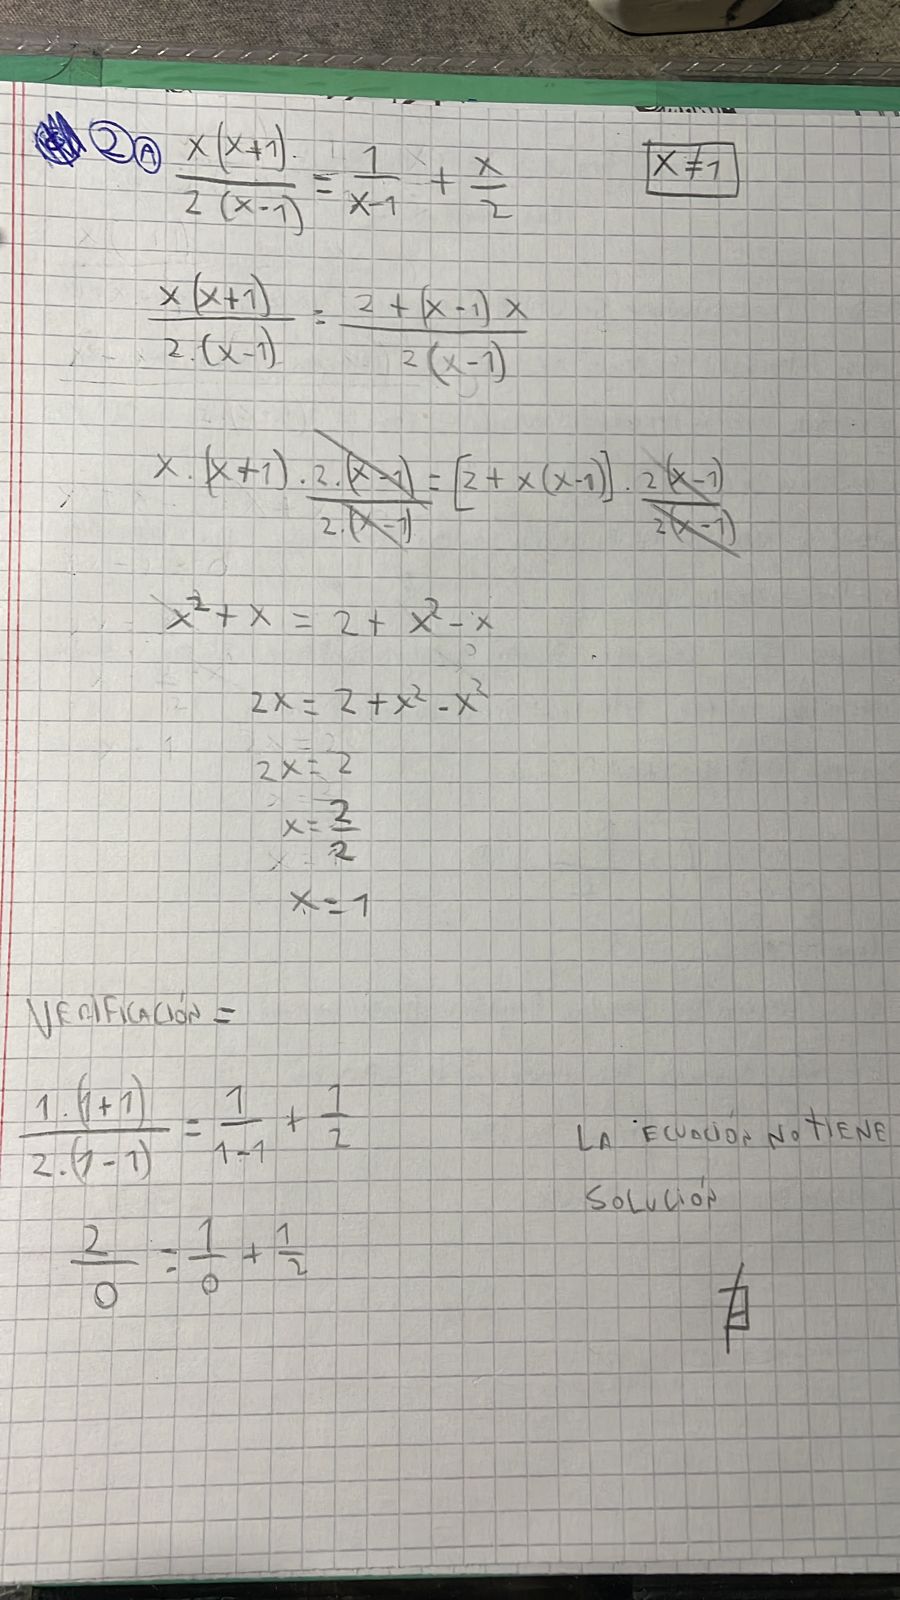 2 A x(x+1) / 2(x-1) = 1/(x-1) + x/2
x ≠ 1
x(x+1) / 2.(x-1) = 2+(x-1)x / 2(x-1)
x.(x+1).2.(x-1) / 2.(x-1) = [2+x(x-1)].2(x-1) / 2(x-1)
x²+x = 2+x²-x
2x = 2+x²-x²
2x = 2
x = 2/2
x = 1
VERIFICACIÓN =
1.(1+1) / 2.(1-1) = 1/(1-1) + 1/2
2/0 = 1/0 + 1/2
LA ECUACIÓN NO TIENE
SOLUCIÓN
∄